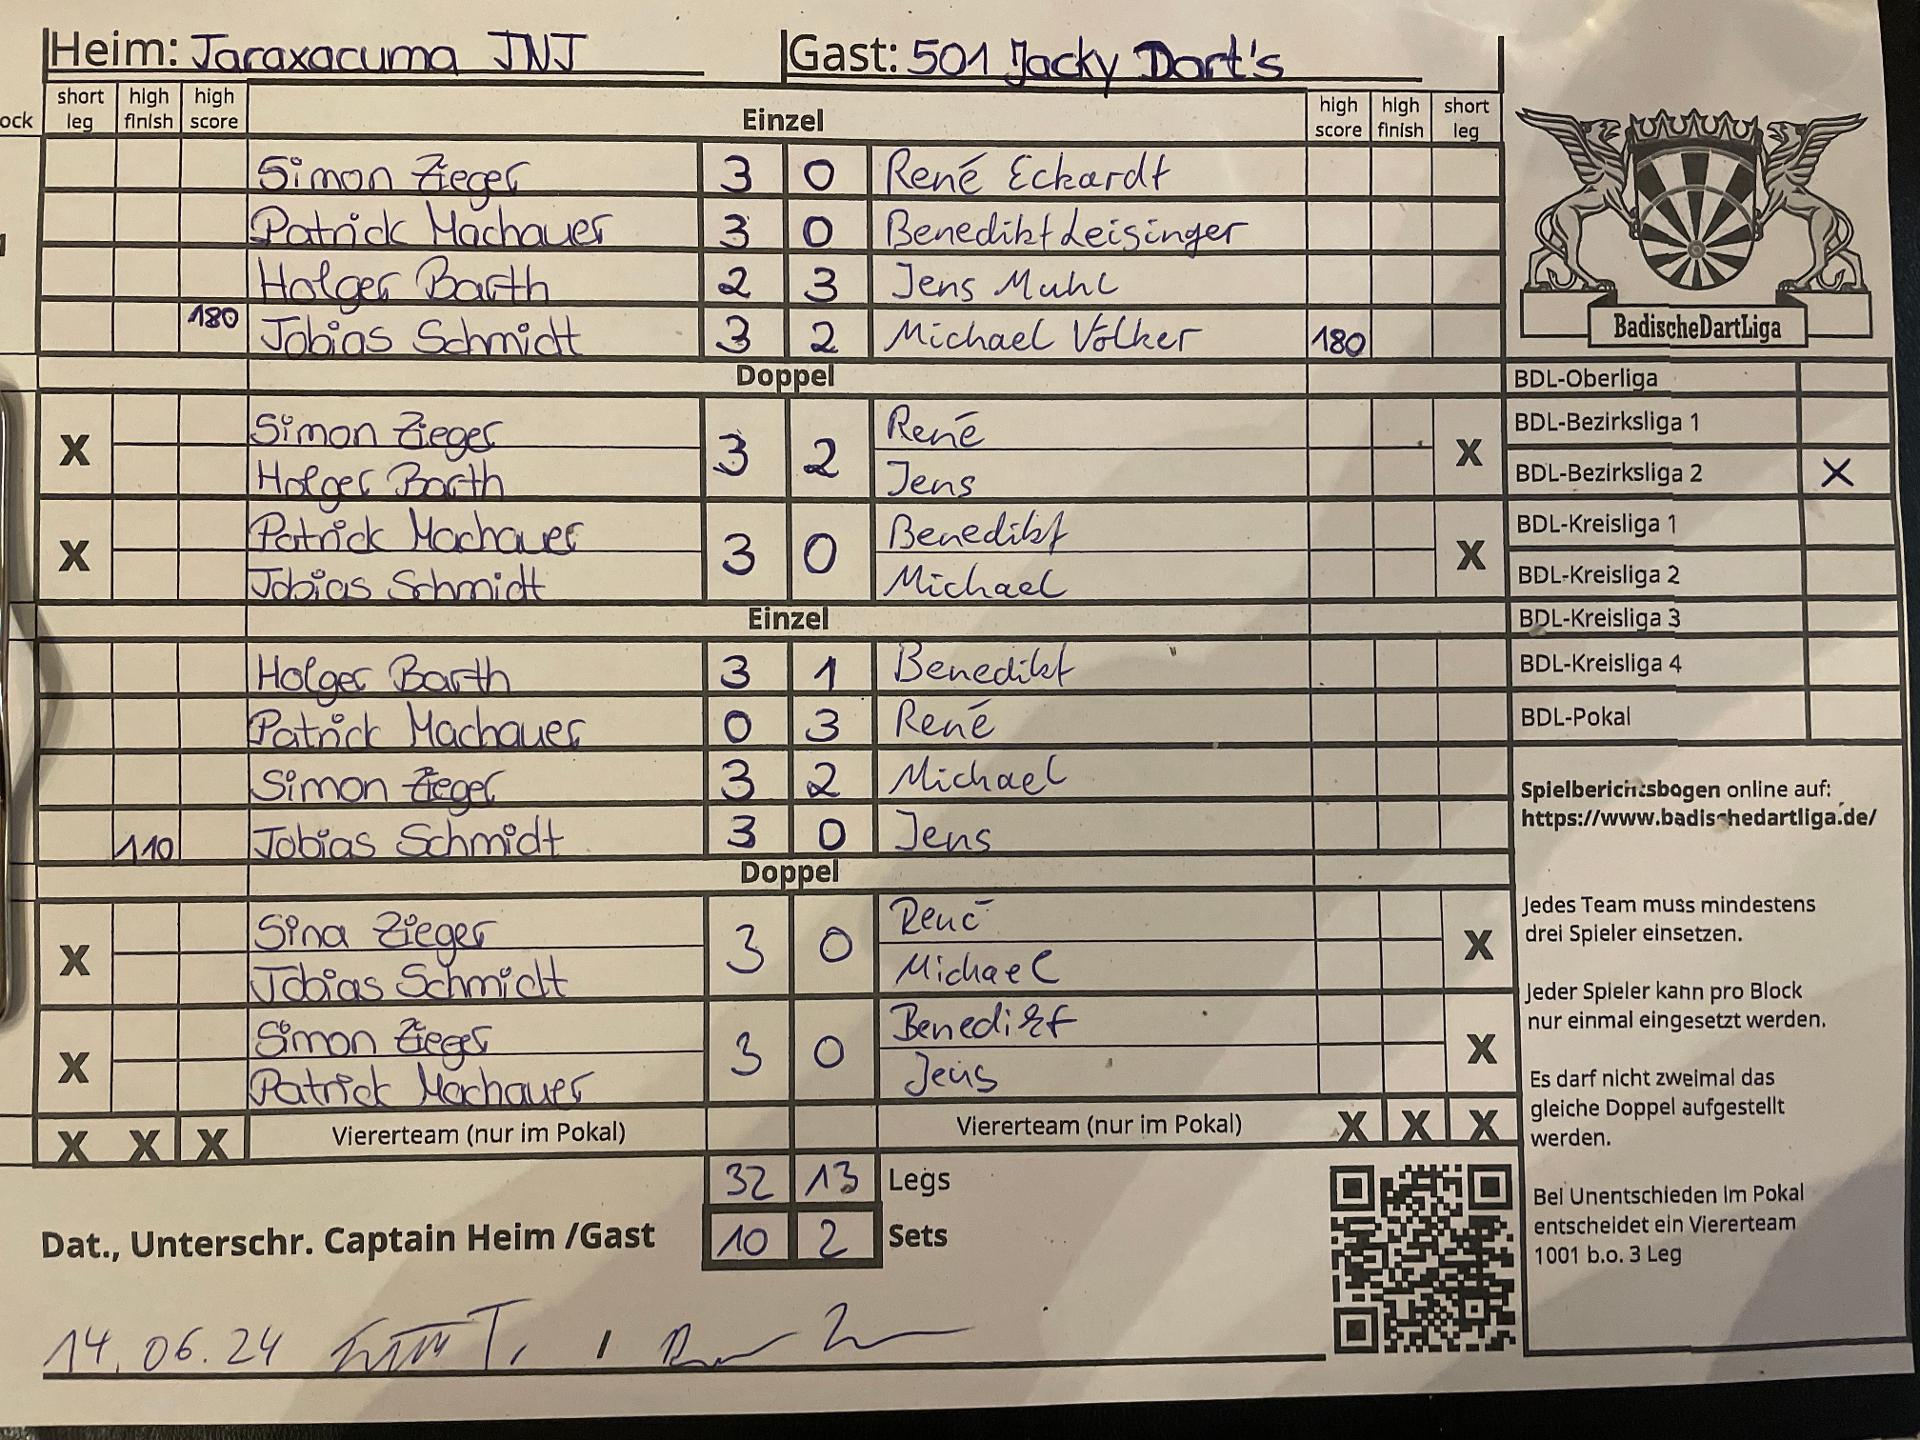 Heim: Taraxacuma TNT Gast: 501 Jacky Dart's
ock short leg high finish high score Einzel high score high finish short leg
Simon Zieger 3 0 René Eckardt
Patrick Machauer 3 0 Benedikt Leisinger
Holger Barth 2 3 Jens Muhl
180 Tobias Schmidt 3 2 Michael Volker 180
BadischeDartLiga
Doppel
Simon Zieger 3 2 René
X Holger Barth Jens X
Patrick Machauer 3 0 Benedikt
X Tobias Schmidt Michael X
Einzel
Holger Barth 3 1 Benedikt
Patrick Machauer 0 3 René
Simon Zieger 3 2 Michael
110 Tobias Schmidt 3 0 Jens
Doppel
Sina Zieger 3 0 René
X Tobias Schmidt Michael X
Simon Zieger 3 0 Benedikt
X Patrick Machauer Jens X
X X X Viererteam (nur im Pokal) Viererteam (nur im Pokal) X X X
32 13 Legs
Dat., Unterschr. Captain Heim /Gast 10 2 Sets
14.06.24 /
BDL-Oberliga
BDL-Bezirksliga 1
BDL-Bezirksliga 2 X
BDL-Kreisliga 1
BDL-Kreisliga 2
BDL-Kreisliga 3
BDL-Kreisliga 4
BDL-Pokal
Spielberichtsbogen online auf:
https://www.badischedartliga.de/
Jedes Team muss mindestens
drei Spieler einsetzen.
Jeder Spieler kann pro Block
nur einmal eingesetzt werden.
Es darf nicht zweimal das
gleiche Doppel aufgestellt
werden.
Bei Unentschieden im Pokal
entscheidet ein Viererteam
1001 b.o. 3 Leg